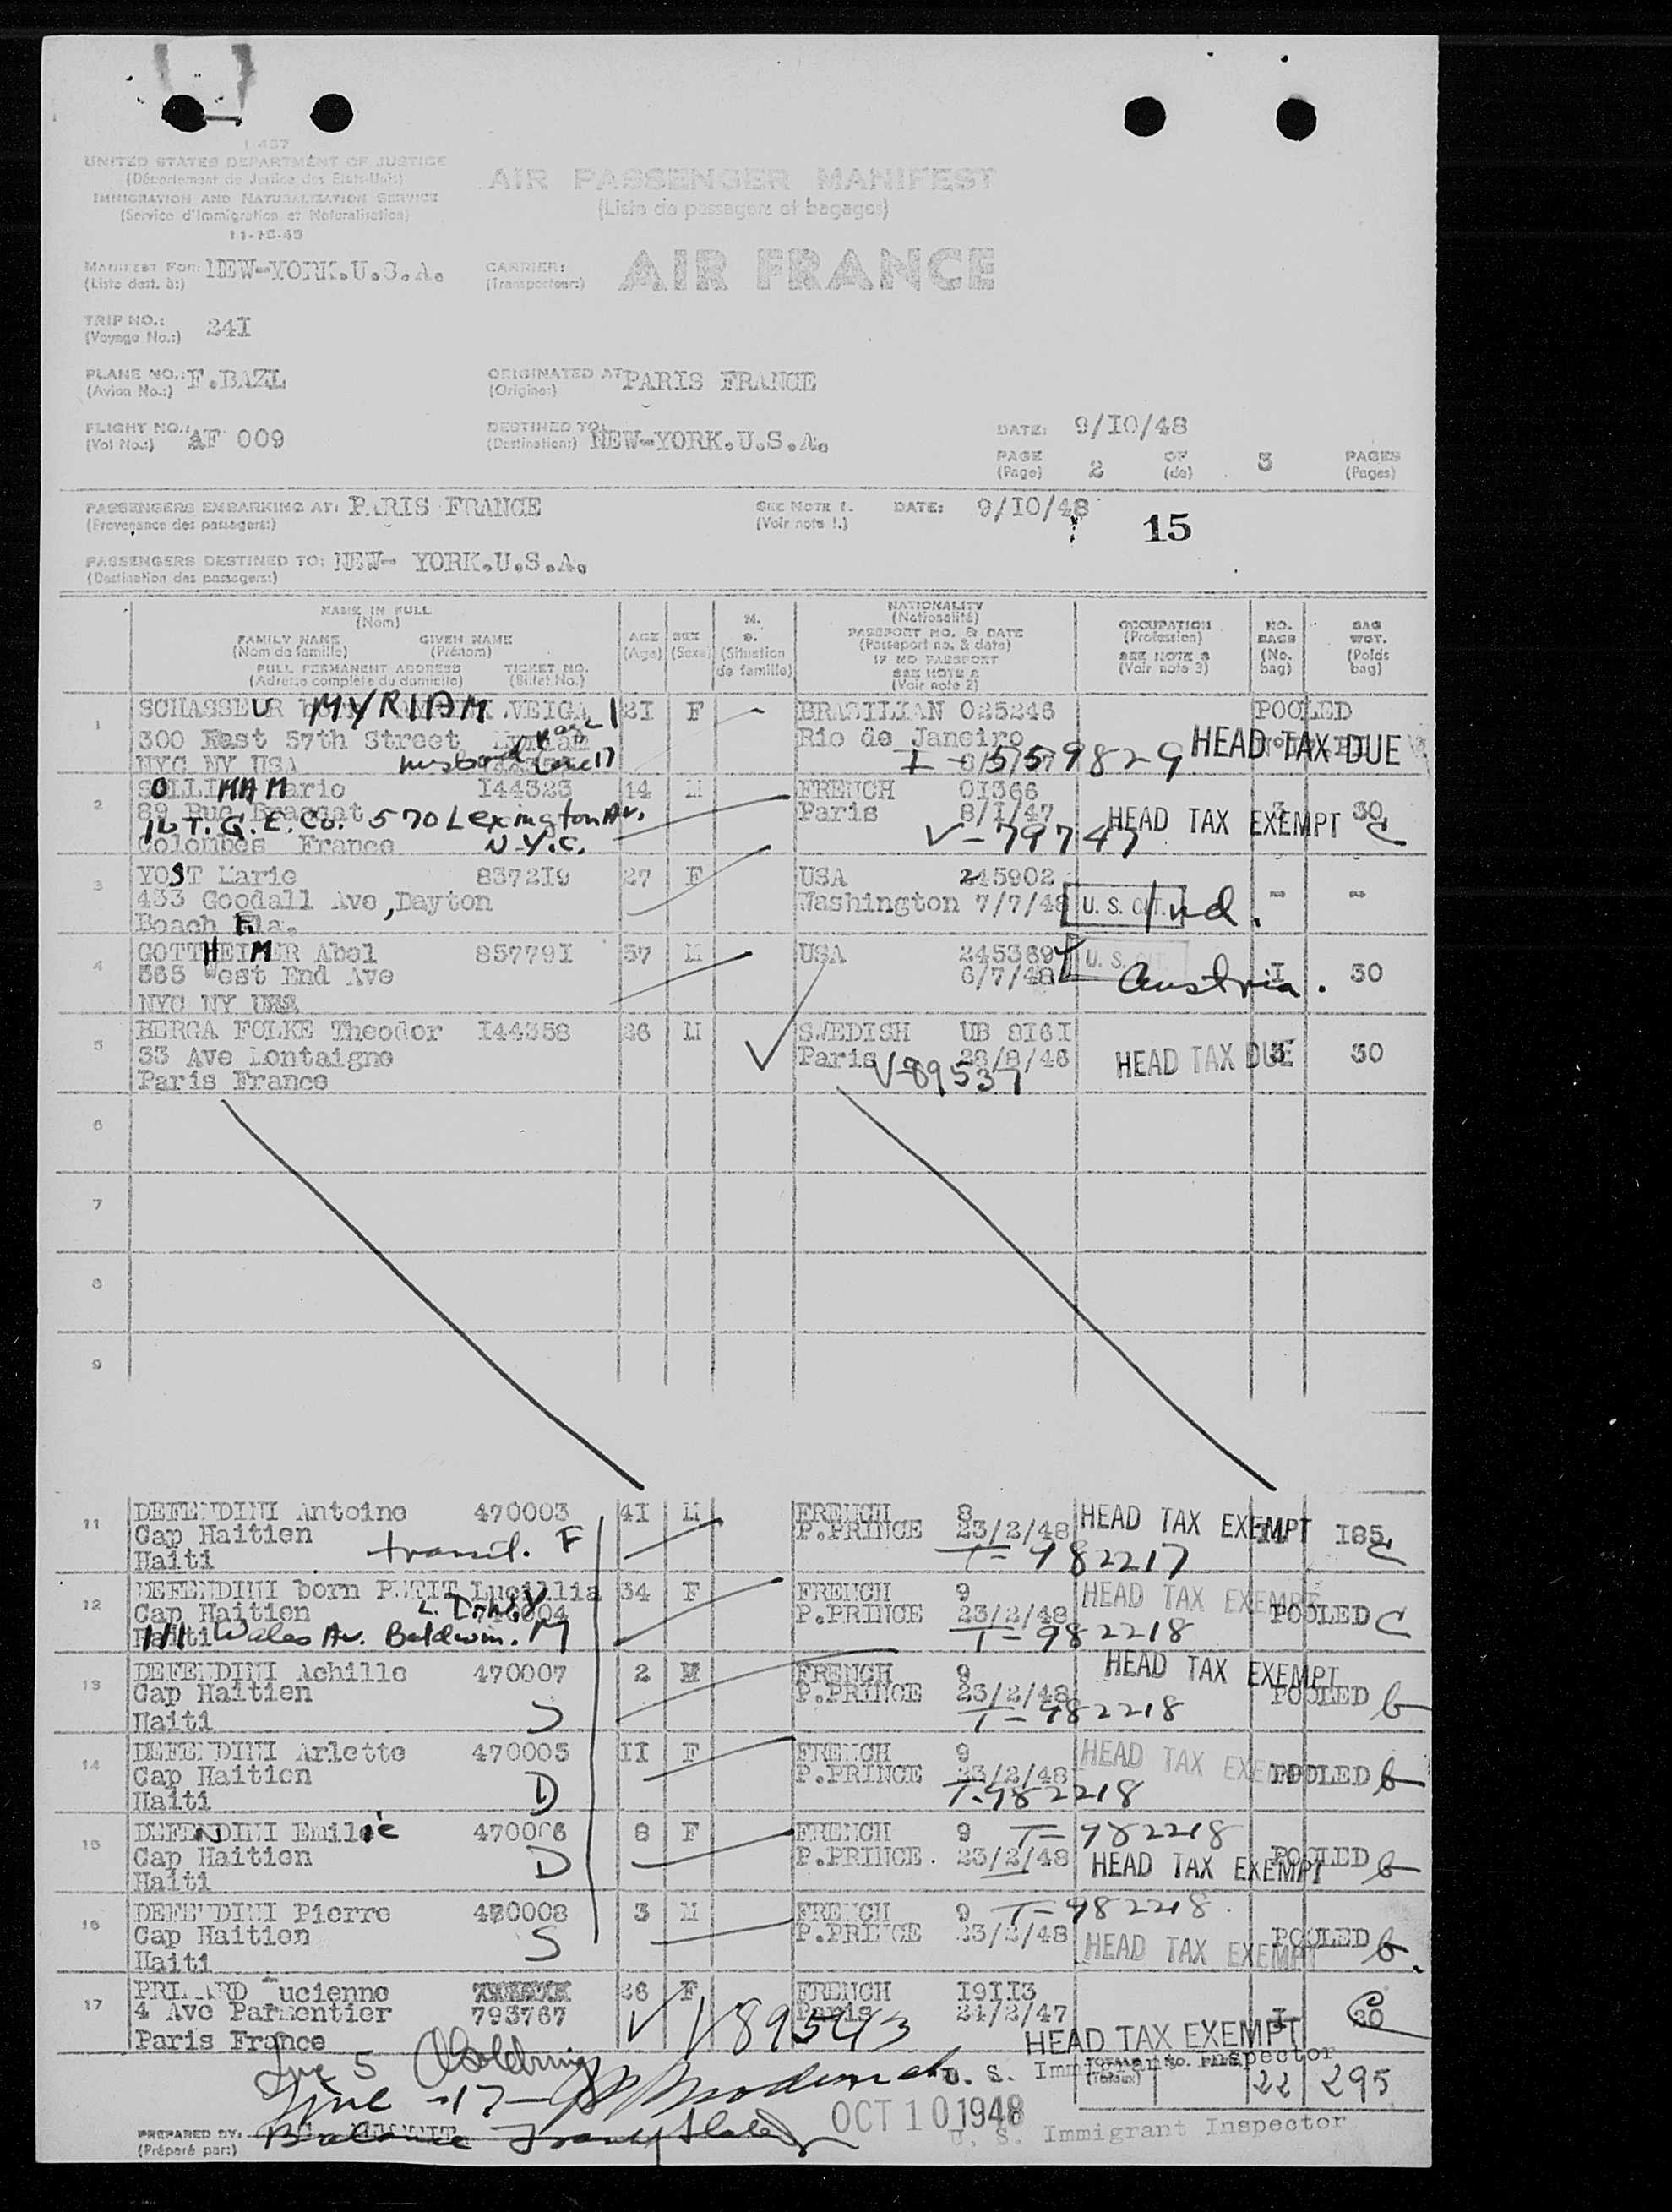 I-457
UNITED STATES DEPARTMENT OF JUSTICE
(Département de Justice des Etats-Unis)
IMMIGRATION AND NATURALIZATION SERVICE
(Service d'Immigration et Naturalisation)
11-15-45
AIR PASSENGER MANIFEST
(Liste de passagers et bagages)
MANIFEST FOR: NEW-YORK.U.S.A.
(Liste dest. à:)
CARRIER: AIR FRANCE
(Transporteur:)
TRIP NO.: 24I
(Voyage No.:)
PLANE NO.: F.BAZL
(Avion No.:)
ORIGINATED AT PARIS FRANCE
(Origine:)
FLIGHT NO.: AF 009
(Vol No.:)
DESTINED TO: NEW-YORK.U.S.A.
(Destination:)
DATE: 9/IO/48
PAGE 2 OF 3 PAGES
(Page) (de) (Pages)
PASSENGERS EMBARKING AT: PARIS FRANCE
(Provenance des passagers:)
SEE NOTE 1. DATE: 9/IO/48
(Voir note 1.)
15
PASSENGERS DESTINED TO: NEW- YORK.U.S.A.
(Destination des passagers:)
NAME IN FULL
(Nom)
FAMILY NAME GIVEN NAME
(Nom de famille) (Prénom)
FULL PERMANENT ADDRESS TICKET NO.
(Adresse complète du domicile) (Billet No.)
AGE
(Age)
SEX
(Sexe)
M.
S.
(Situation
de famille)
NATIONALITY
(Nationalité)
PASSPORT NO. & DATE
(Passeport no. & date)
IF NO PASSPORT
SEE NOTE 2
(Voir note 2)
OCCUPATION
(Profession)
SEE NOTE 3
(Voir note 3)
NO.
BAGS
(No.
bag)
BAG
WGT.
(Poids
bag)
1 SCHASSEUR MYRIAM VEIGA 2I F BRAZILIAN 025246 POOLED
300 East 57th Street Rio de Janeiro
NYC NY USA husband page 1 line 17 I-559829 HEAD TAX DUE
2 SOLLIMAM Mario I44323 14 M FRENCH 0I366
89 Rue Paris 8/I/47 HEAD TAX EXEMPT 30 C
I.T.&.E. Co. 570 Lexington Av. V-79747
Colombes France N.Y.C.
3 YOST Marie 8372I9 27 F USA 245902
433 Goodall Ave ,Dayton Washington 7/7/48 U. S. CIT. Ind. - -
Beach Fla.
4 GOTTHEIMER Abel 85779I 57 M USA 245369 U. S. CIT.
565 West End Ave 6/7/48 Austria. I 30
NYC NY USA
5 BERGA FOLKE Theodor I44358 26 M SWEDISH UB 8I6I
33 Ave Montaigne Paris 28/8/46 HEAD TAX DUE 3 30
Paris France V-89537
6
7
8
9
11 DEFENDINI Antoine 470003 4I M FRENCH 8 HEAD TAX EXEMPT I85 C
Cap Haitien P.PRINCE 23/2/48
Haiti transit. F T-982217
12 DEFENDINI born PETIT Lucillia 34 F FRENCH 9 HEAD TAX EXEMPT
Cap Haitien P.PRINCE 23/2/48 POOLED C
Haiti 111 Wales Av. Baldwin. M T-982218
13 DEFENDINI Achille 470007 2 M FRENCH 9 HEAD TAX EXEMPT
Cap Haitien P.PRINCE 23/2/48 POOLED
Haiti S T-982218
14 DEFENDINI Arlette 470005 II F FRENCH 9 HEAD TAX EXEMPT
Cap Haitien P.PRINCE 23/2/48 POOLED
Haiti D T-982218
15 DEFENDINI Emilie 470006 8 F FRENCH 9 T-982218
Cap Haitien P.PRINCE. 23/2/48 HEAD TAX EXEMPT POOLED
Haiti D
16 DEFENDINI Pierre 470008 3 M FRENCH 9 T-982218.
Cap Haitien P.PRINCE 23/2/48 HEAD TAX EXEMPT POOLED
Haiti S
17 Lucienne 26 F FRENCH I9II3
4 Ave Parmentier 793767 Paris 24/2/47 I 20
Paris France V89543 HEAD TAX EXEMPT
Line 5
U. S. Immigrant Inspector
22 295
Line -17-
OCT 10 1948
PREPARED BY: Balance
(Préparé par:)
U. S. Immigrant Inspector